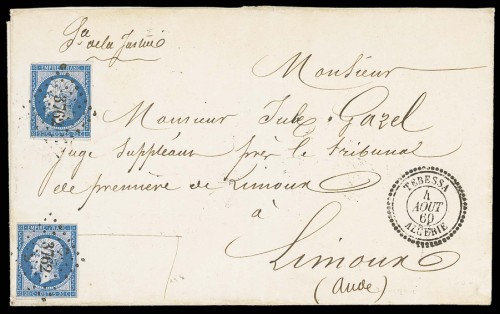 Pe de la Justice
EMPIRE FRANC.
3762
Monsieur
Monsieur Jules Gazel
Juge Suppléant près le tribunal
de première de Limoux
à
Limoux
(Aude)
TEBESSA
4
AOUT
60
ALGERIE
EMPIRE FRANC.
3762